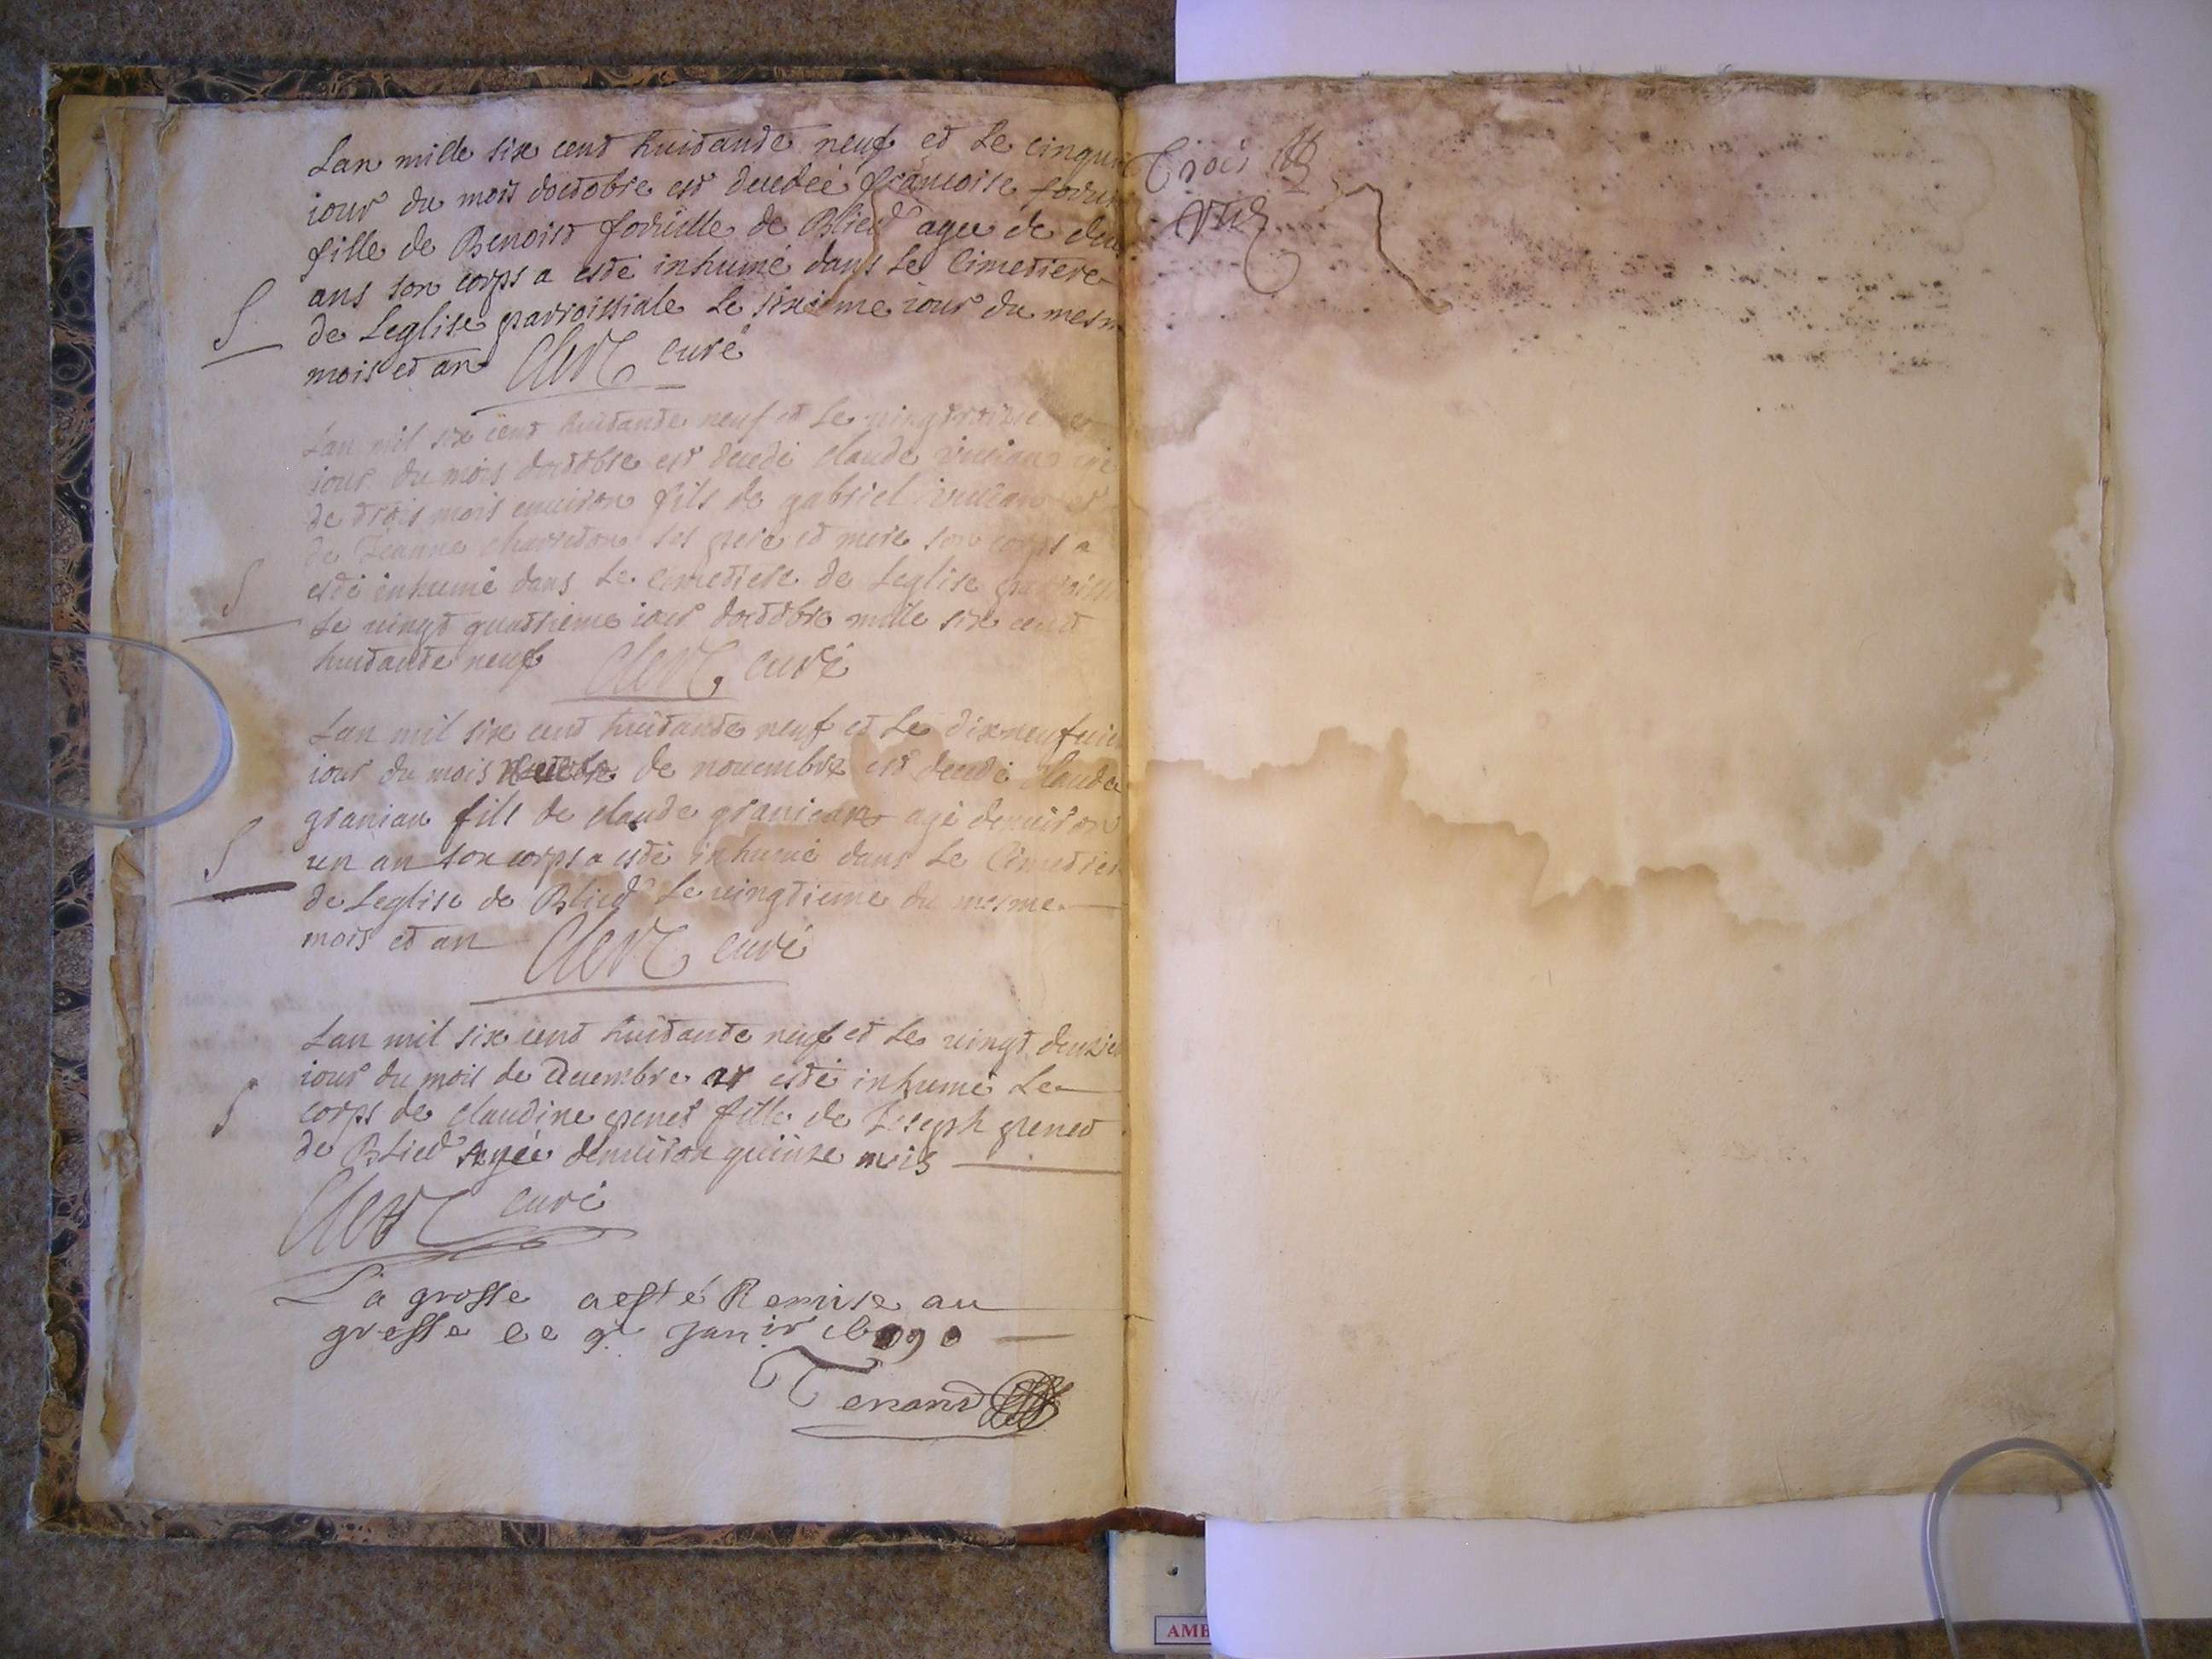 Lan mille six cent huitante neuf et Le cinqui
iour du mois doctobre est decedeé francoise
fille de Benoist fortielle de Blied agee de deu
ans son corps a esté inhumé dans Le Cimetiere
S de Leglise parroissiale Le sixieme iour du mesm
mois et an Clerc curé
Lan mil six cent huitante neuf et Le vingtroisieme
iour du mois doctobre est decedé claude vivian agé
de trois mois environ fils de gabriel vivian et
de Jeanne charreton ses pere et mere son corps a
S esté inhumé dans Le cimetiere de Leglise parroiss
Le vingt quatrieme iour doctobre mille six cent
huitante neuf Clerc curé
Lan mil six cent huitante neuf et Le dixneufuie
iour du mois de nouembre est decedé claude
granian fils de claude granian agé denuiron
S un an son corps a esté inhumé dans Le Cimetier
de Leglise de Blied Le vingtieme du mesme
mois et an Clerc curé
Lan mil six cent huitante neuf et Le vingt deuzie
iour du mois de Decembre esté inhumé Le
S corps de claudine penet fille de Joseph penet
de Blied agée denuiron quinze mois
Clerc curé
La grosse a esté Remise au
greffe le 9e Janir 1690
Tenand
Trois
AMB